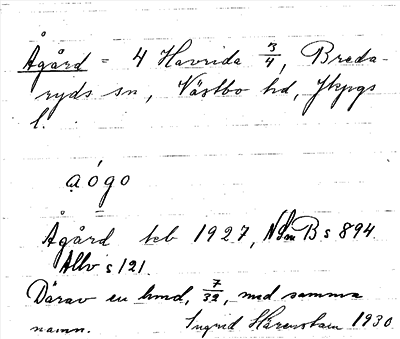 Ågård = 4 Havrida 3/4, Breda-
ryds sn, Västbo hd, Jkpgs
l.
a̤ógo
Ågård teb 1927, NSmB s 894.
Allv s 121.
Därav en hmd, 7/32, med samma
namn. Ingrid Härenstam 1930